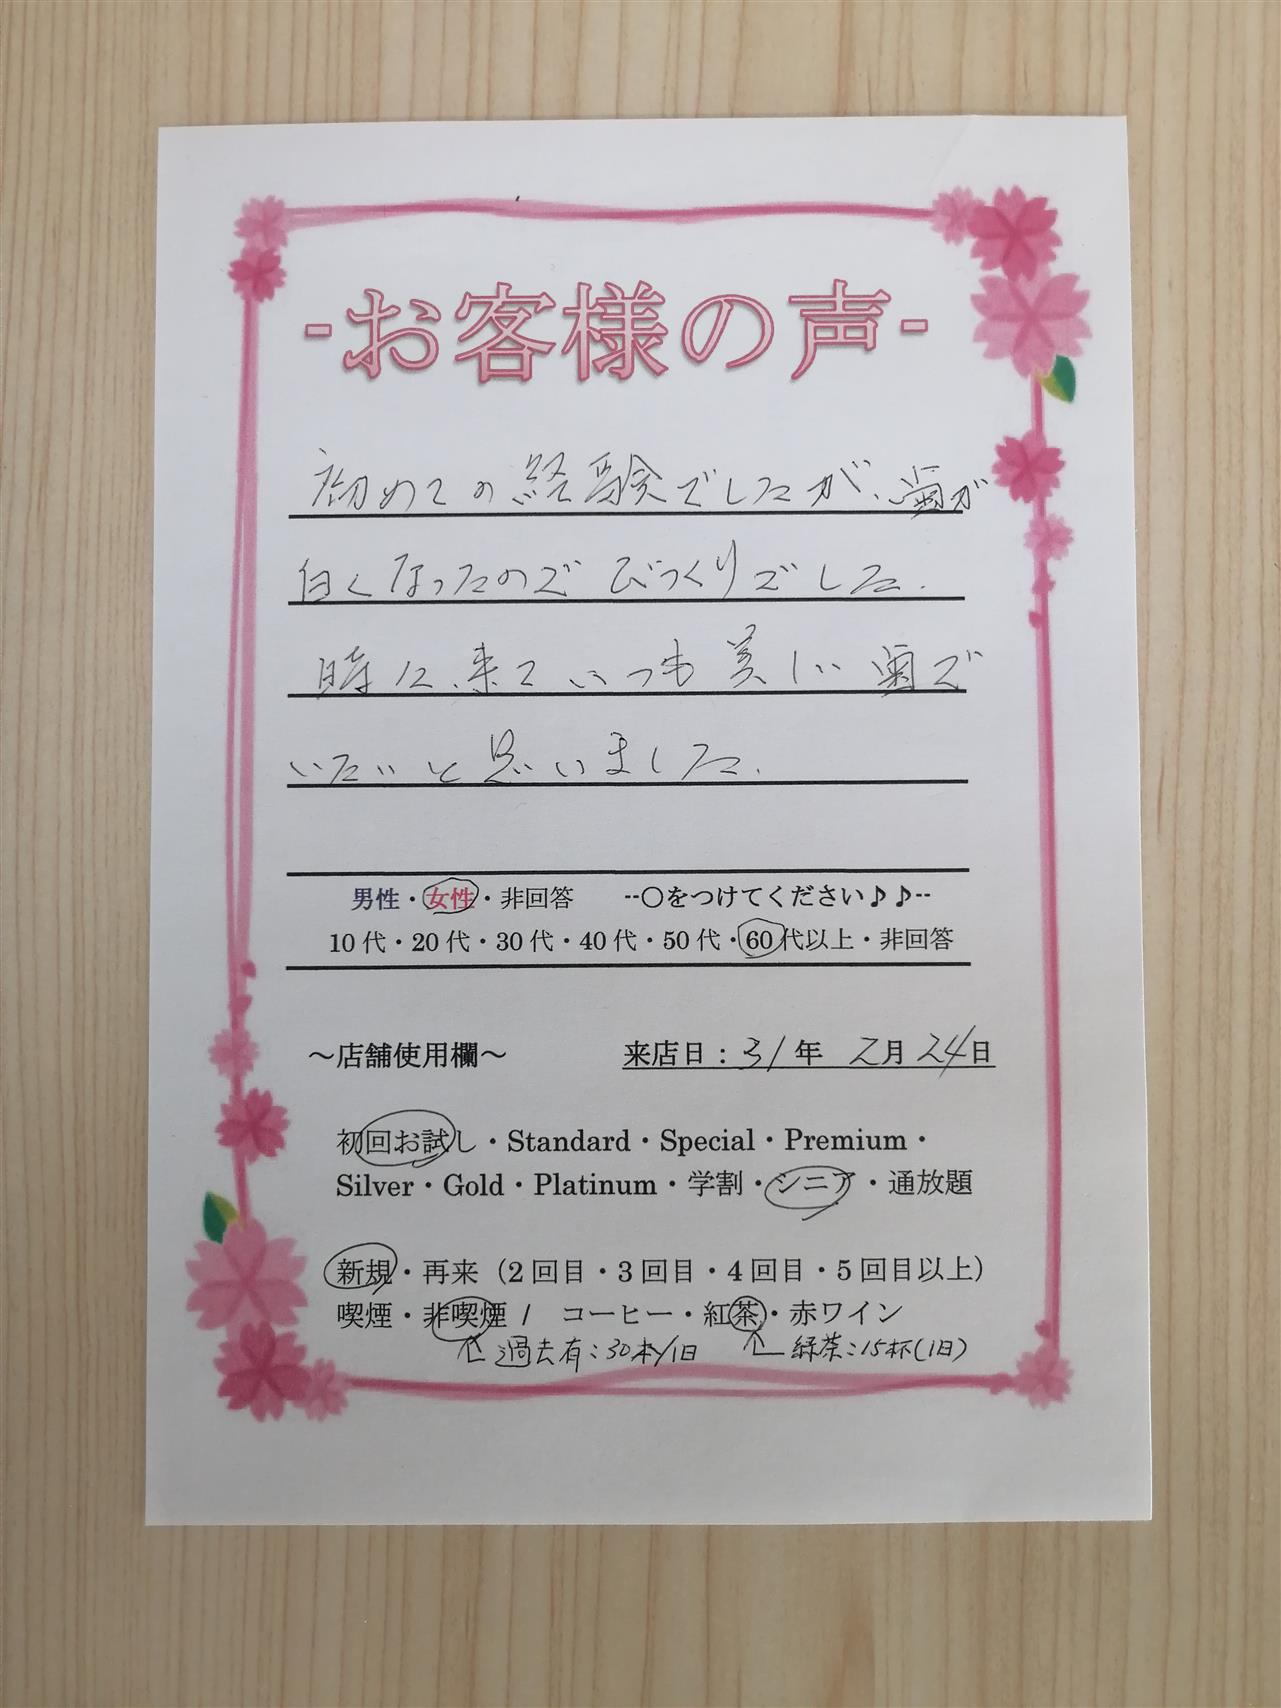 -お客様の声-
初めての経験でしたが、歯が
白くなったのでびっくりでした.
時に来ていつも美しい歯で
いたいと思いました.
男性・女性・非回答 --〇をつけてください♪♪--
10代・20代・30代・40代・50代・60代以上・非回答
～店舗使用欄～ 来店日：31年 2月24日
初回お試し・Standard・Special・Premium・
Silver・Gold・Platinum・学割・シニア・通放題
新規・再来（2回目・3回目・4回目・5回目以上）
喫煙・非喫煙 / コーヒー・紅茶・赤ワイン
過去有：30本/1日 緑茶：15杯(1日)